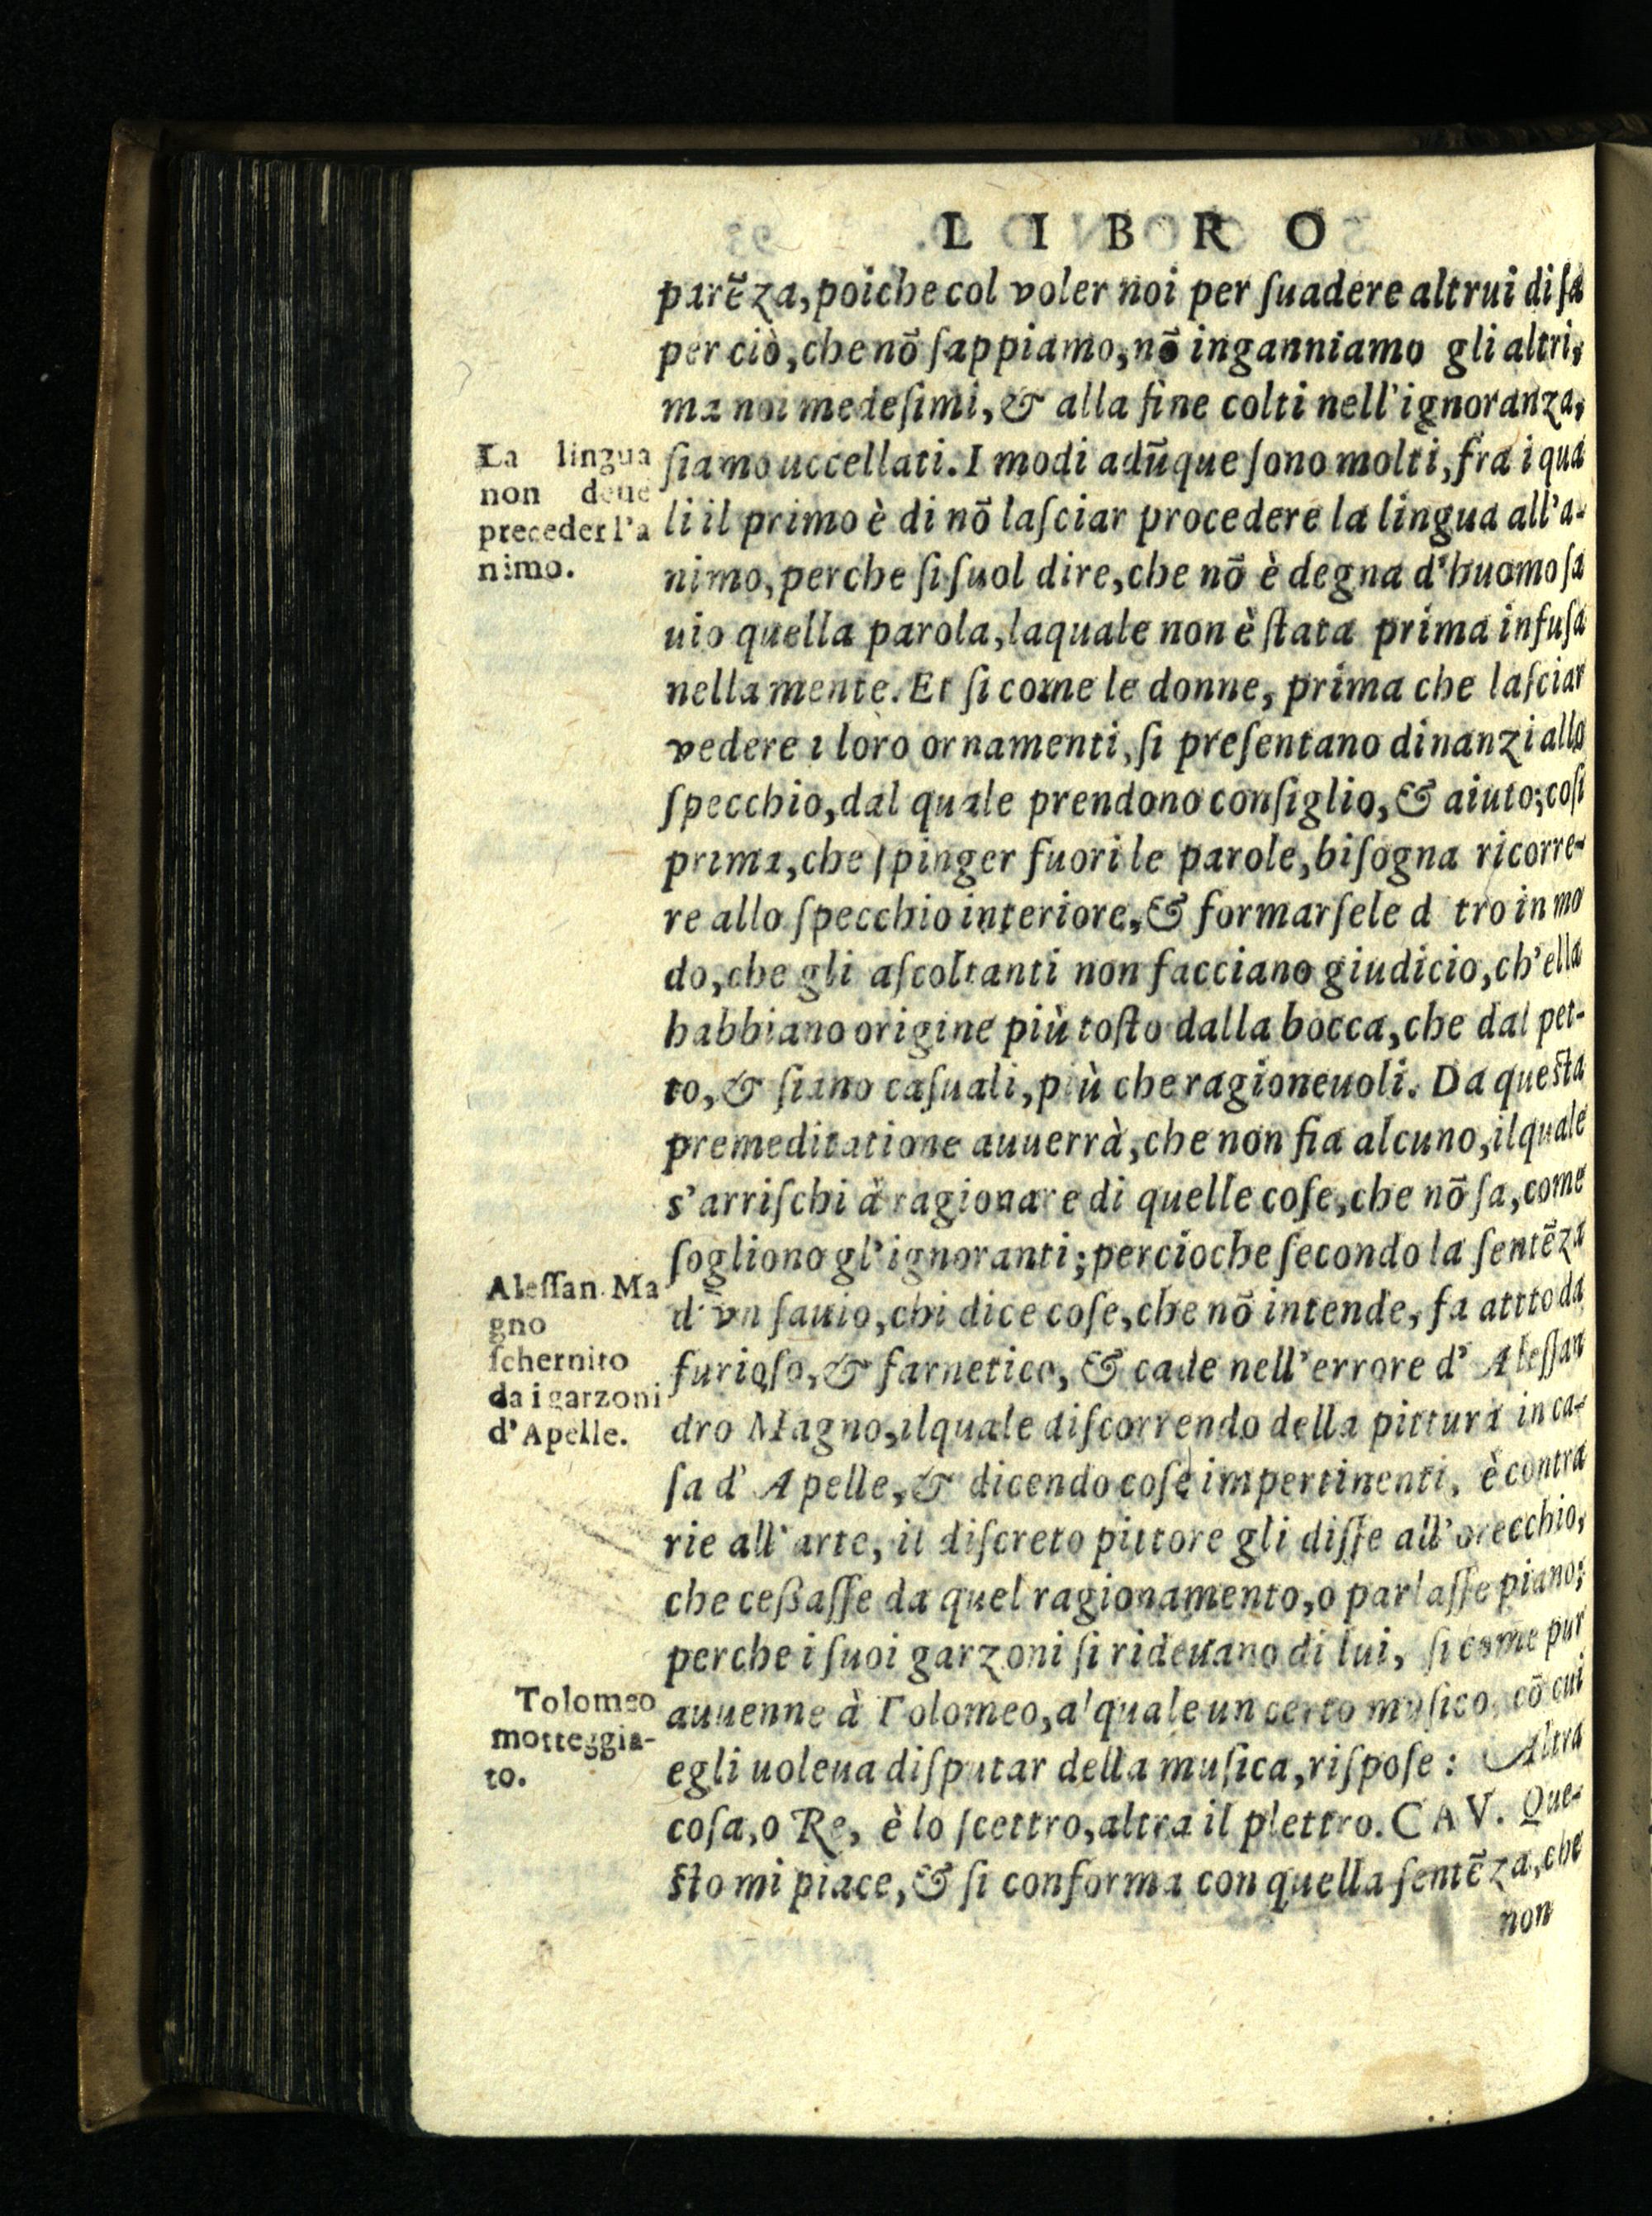 LIBRO
parēza, poiche col voler noi per ſuadere altrui di ſa
per ciò, che nō ſappiamo, nō inganniamo gli altri,
ma noi medeſimi, & alla fine colti nell'ignoranza,
ſiamo uccellati. I modi adūque ſono molti, fra i qua
li il primo è di nō laſciar procedere la lingua all'a-
nimo, perche ſi ſuol dire, che nō è degna d'huomo ſa
uio quella parola, laquale non è ſtata prima infuſa
nella mente. Et ſi come le donne, prima che laſciar
vedere i loro ornamenti, ſi preſentano dinanzi allo
ſpecchio, dal quale prendono conſiglio, & aiuto; coſi
prima, che ſpinger fuori le parole, biſogna ricorre-
re allo ſpecchio interiore, & formarſele d tro in mo
do, che gli aſcoltanti non facciano giudicio, ch'ella
habbiano origine più toſto dalla bocca, che dal pet-
to, & ſiano caſuali, più che ragioneuoli. Da queſta
premeditatione auuerrà, che non fia alcuno, ilquale
s'arriſchi à ragionare di quelle coſe, che nō ſa, come
ſogliono gl'ignoranti; percioche ſecondo la ſentēza
d'vn ſauio, chi dice coſe, che nō intende, fa attto da
furioſo, & farnetico, & cade nell'errore d'Aleſſan
dro Magno, ilquale diſcorrendo della pittura in ca-
ſa d'Apelle, & dicendo coſe impertinenti, è contra
rie all'arte, il diſcreto pittore gli diſſe all'orecchio,
che ceßaſſe da quel ragionamento, o parlaſſe piano;
perche i ſuoi garzoni ſi rideuano di lui, ſi come pur
auuenne à Tolomeo, al quale un certo muſico, cō cui
egli uoleua diſputar della muſica, riſpoſe: Altra
coſa, o Re, è lo ſcettro, altra il plettro. CAV. Que-
ſto mi piace, & ſi conforma con quella ſentēza, che
non
La lingua
non deue
preceder l'a
nimo.
Aleſſan. Ma
gno
ſchernito
da i garzoni
d'Apelle.
Tolomeo
motteggia-
to.